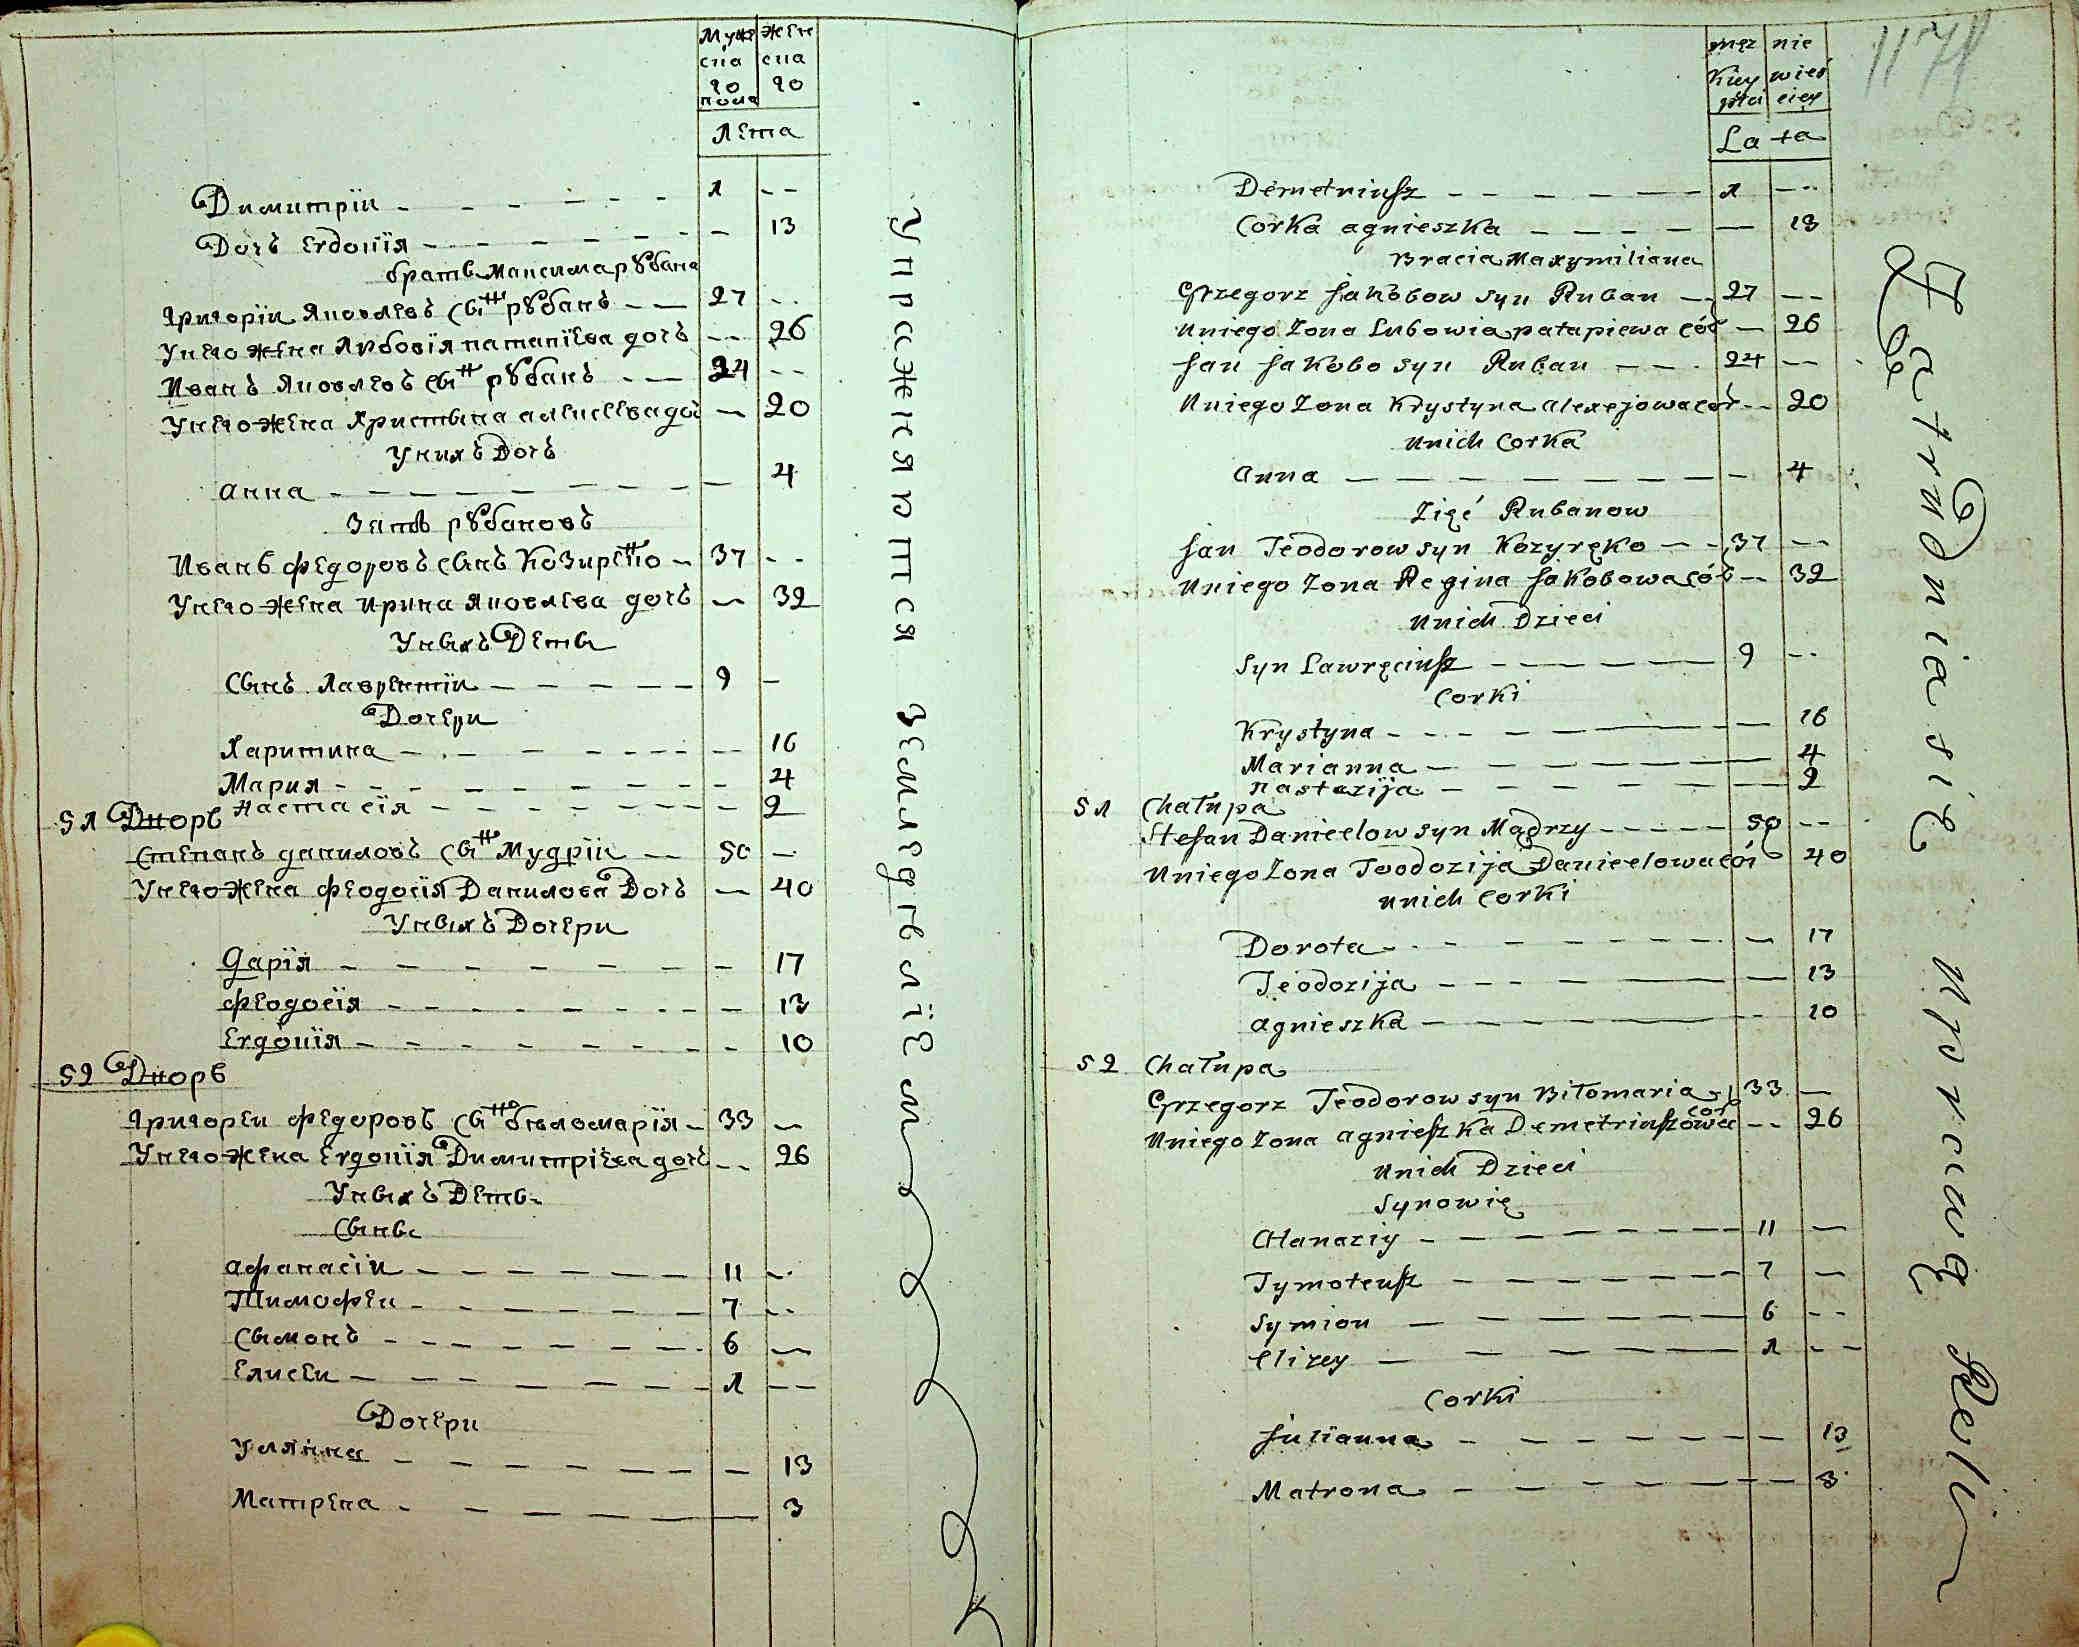 Мужеска​го пола
Женска​го
Лета
Димитрїи 1 --
Дочь Евдокїя - 13
братья Максима рубана
Григорїи Яковлевъ сынъ рубанъ 27 --
У него жена Любовїя патапїева дочь -- 26
Иванъ Яковлевъ сынъ рубанъ 24 --
У него жена Христина алексеева дочь - 20
У нихъ Дочь
Анна - 4
Зять рубановъ
Иванъ федоровъ сынъ Козиренко 37 --
У него жена ирина яковлева дочь - 32
У ныхъ Дети
Сынъ Лаврентїи 9 -
Дочери
Харитина -- 16
Мария - 4
Настасїя - 2
51 Дворъ
Степанъ даниловъ сынъ Мудрїи 50 -
У него жена феодосїя Данилова Дочь - 40
У ныхъ Дочери
Дарїя - 17
феодосїя - 13
Евдокїя - 10
52 Дворъ
Григореи федоровъ сынъ беломарїя 33 -
У него жена Евдокїя Димитрїева дочь -- 26
У ныхъ Дети
Сыны
афанасїи 11 -
Тимофеи 7 --
Сымонъ 6 -
Елисеи 1 --
Дочери
Улянна - 13
Матрена - 3
Упражняются земледелїем
męzkiey płci
niewieściey
Lata
1171
Demetriusz 1 --
Corka agnieszka - 13
Bracia Maxymiliana
Grzegorz Jakobow syn Ruban 27 --
Uniego Zona Lubowia patapiewa cór - 26
Jan Jakobo syn Ruban 24 --
Uniego Zona Krystyna alexejowa cór -- 20
unich Corka
Anna - 4
Zięć Rubanow
Jan Teodorow syn Kozyręko 37 --
Uniego Zona Regina Jakobowa cór -- 32
unich Dzieci
Syn Lawręciusz 9 --
Corki
Krystyna - 16
Marianna - 4
nastazija - 2
51 Chałupa
Stefan Danielow syn Mądrzy 50 --
Uniego Zona Teodozija Danielowa cór 40
unich Corki
Dorota - 17
Teodozija - 13
agnieszka -- 10
52 Chałupa
Grzegorz Teodorow syn Biłomaria 33 -
Uniego Zona agnieszka Demetriuszowa cor -- 26
unich Dzieci
Synowię
Atanaziy 11 -
Tymoteusz 7 -
Symion 6 --
Elizey 1 --
Corki
Julianna - 13
Matrona - 3
Zatrudnia się uprawą Roli